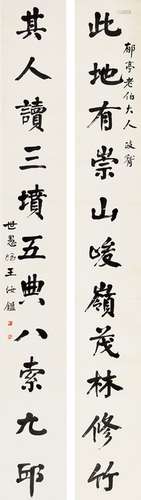 此地有崇山峻嶺茂林修竹
郘亭老伯大人政篆
其人讀三墳五典八索九邱
世愚姪王汝鑑